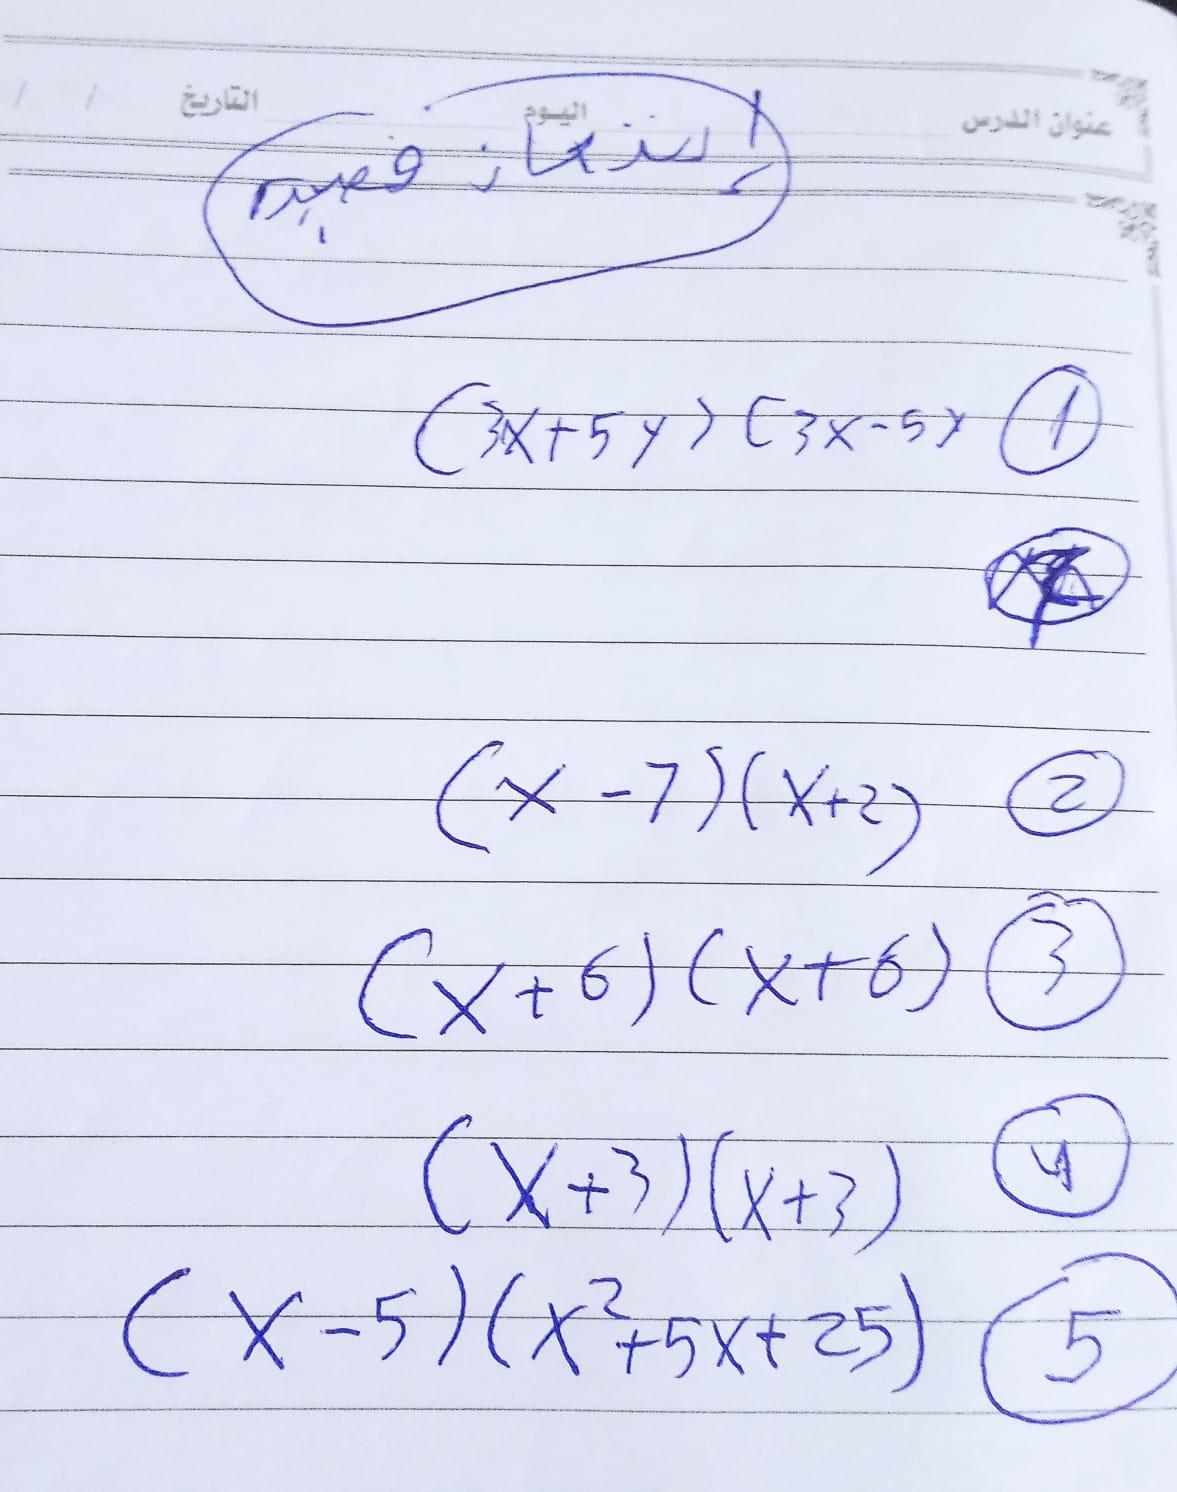 عنوان الدرس اليوم التاريخ / /
إمتحان قصير
(3x+5y) (3x-5y ①
(x-7)(x+2) ②
(x+6)(x+6) ③
(x+3)(x+3) ④
(x-5)(x²+5x+25) ⑤